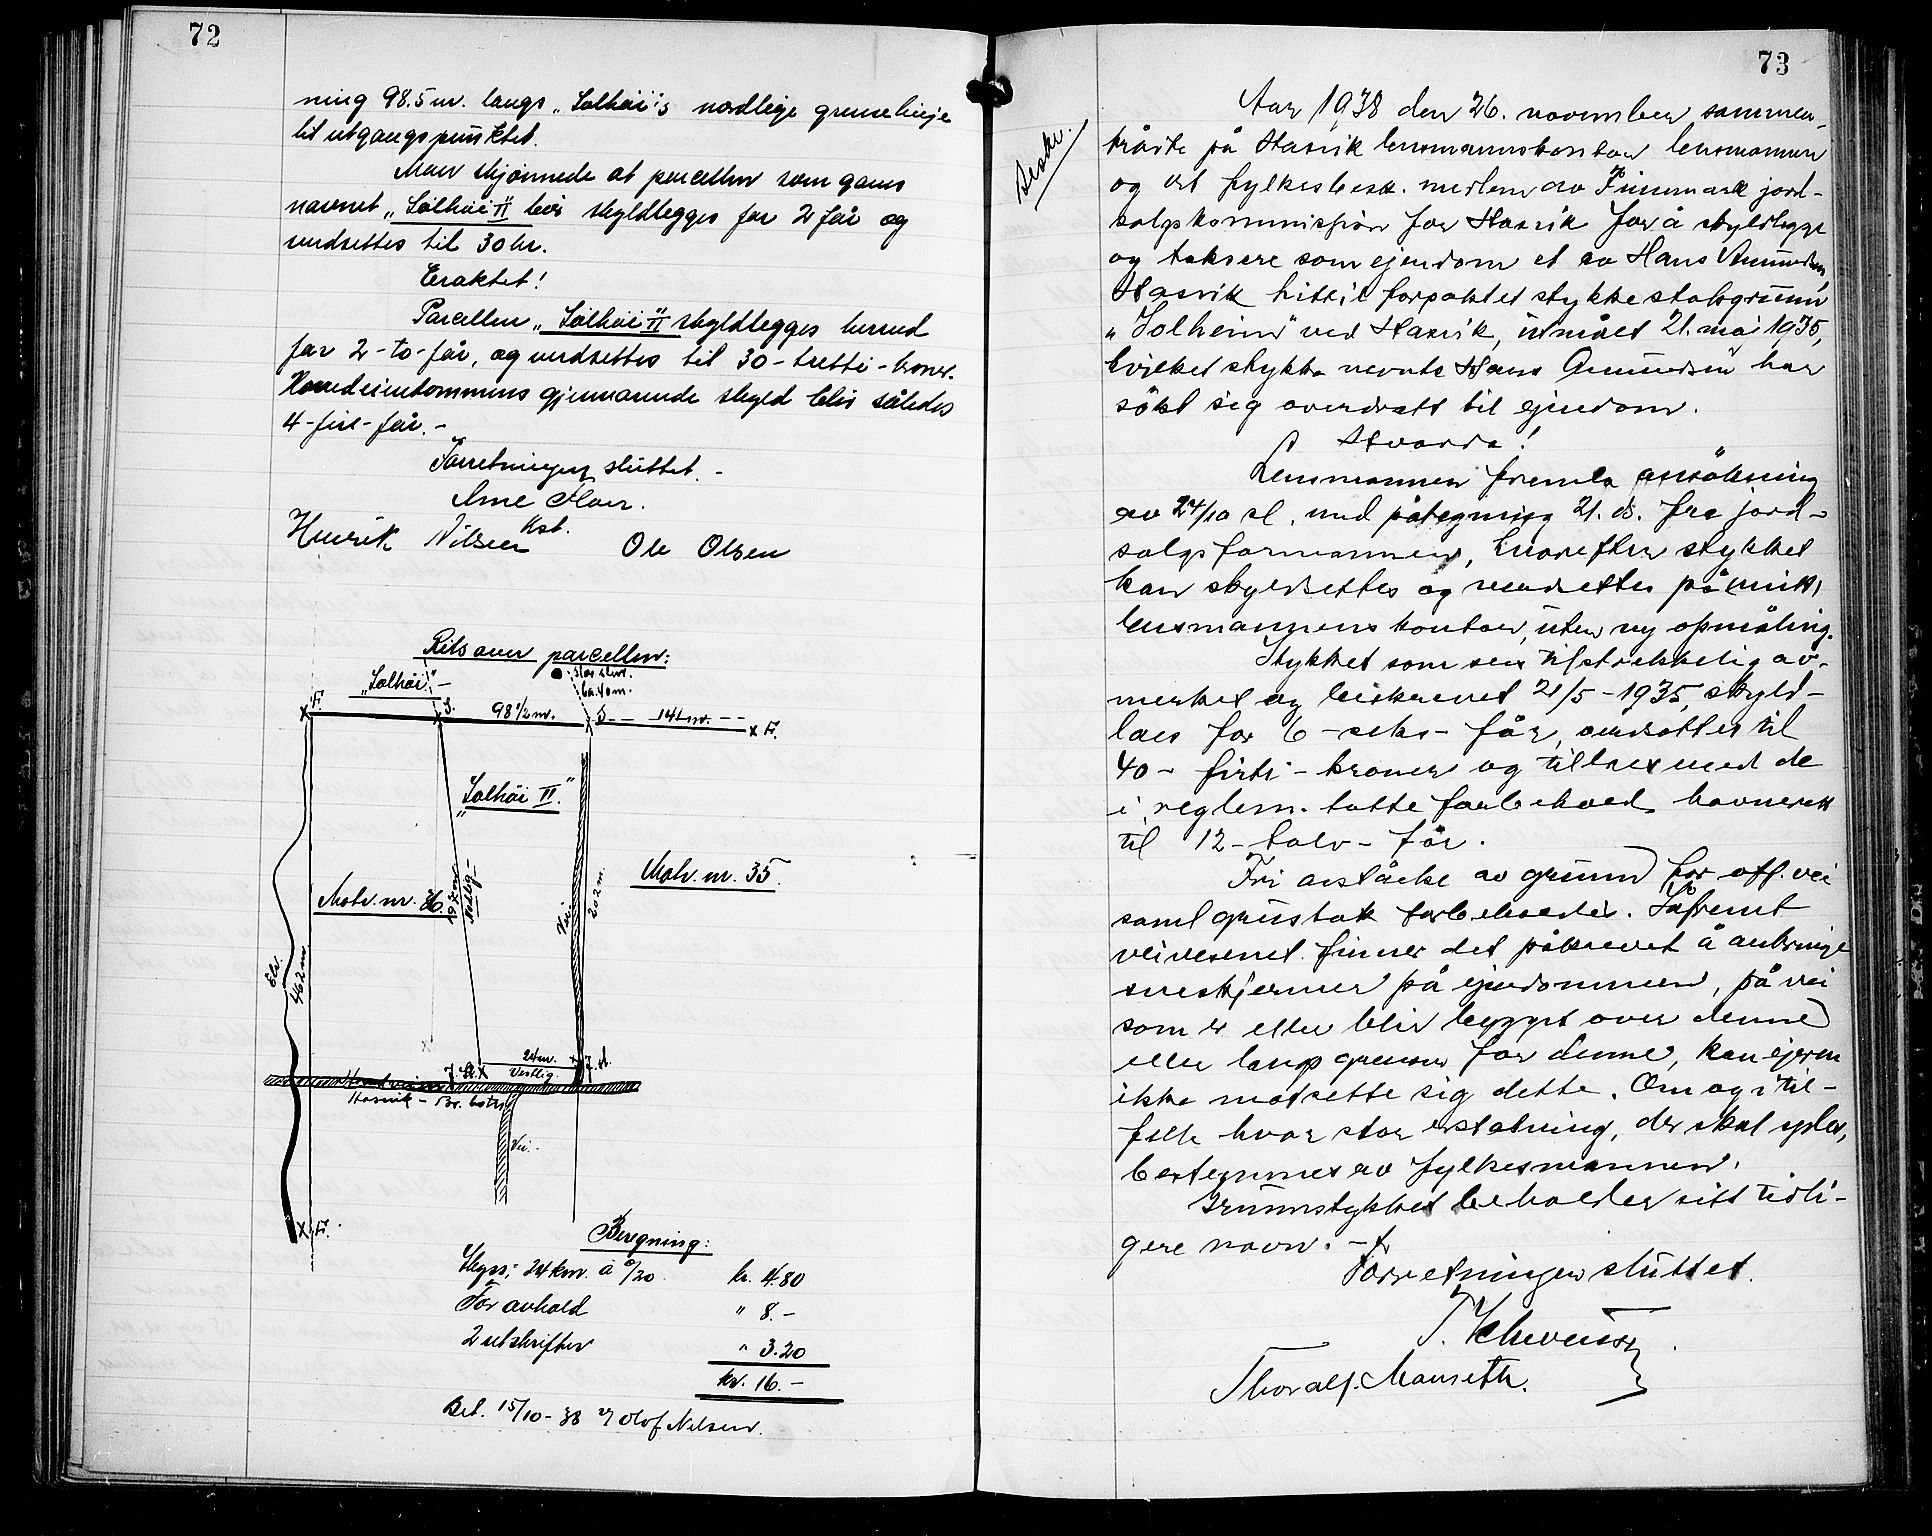 72
ning 98.5 m. langs „Solhöi"s nordlige grenselinje
til utgangspunktet.
Man skjønnede at parcellen som gaves
navnet „Solhöi II" bör skyldlegges for 2 får og
verdsettes til 30 kr.
Eraktet!
Parcellen „Solhöi II" skyldlegges herved
for 2-to-får, og verdsettes til 30-tretti-kroner.
Hovedeiendommens gjenværende skyld blir således
4-fire-får.-
Forretningen sluttet.-
Arne
Kst.
Henrik Nilsen Ole Olsen
Riss over parcellen:
„Solhöi"
Stor sten.
ca. 40 m.
F. S. 98 1/2 m. S. 141 m. F.
„Solhöi II."
Matr. nr. 35.
Matr. nr. 36.
197 m.
Nordlig
Vei
202 m.
Elv.
462 m.
24 m.
Vestlig.
J. St. J. st.
Hovedveien
Hasvik - Br. botn
Vei.
F.
Beregning:
Skyss: 24 km. à 0/20 kr. 4.80
For avhold " 8.-
2 utskrifter " 3.20
kr. 16.-
Bet. 15/10-38 v/ Olof Nilsen.
73
Beskr.
Aar 1938 den 26. november sammen-
trådte på Hasvik lensmannskontor lensmannen
og det fylkesbesk. medlem av Finnmark jord-
salgskommisjon for Hasvik for å skyldlegge
og taksere som ejendom et av Hans Amundsen,
Hasvik hittil forpaktet stykke statsgrunn
„Solheim" ved Hasvik, utmålt 21. mai 1935,
hvilket stykke nevnte Hans Amundsen har
søkt sig overdratt til ejendom.
Lensmannen fremla ansökning
av 24/10 sl. med påtegning 21. ds. fra jord-
salgsformannen, hvorefter stykket
kan skyldsettes og verdsettes på
lensmannens kontor, uten ny opmåling.
Stykket som sees tilstrekkelig av-
merket og beskrevet 21/5-1935, skyld-
laes for 6-seks-får, verdsattes til
40-firti-kroner og tillaes med de
i reglem. tatte forbehold havnerett
til 12-tolv-får.
Fri avståelse av grunn for off. vei
samt grustak forbeholdes. Såfremt
veivesenet finner det påkrevet å anbringe
sneskjermer på ejendommen, på vei
som er eller blir bygget over denne
eller langs grensen for denne, kan ejeren
ikke motsette sig dette. Om og i til-
felle hvor stor erstatning, der skal ydes,
bestemmes av fylkesmannen.
Grunnstykket beholder sitt tidli-
gere navn.-
Forretningen sluttet.
Thoralf Mauseth.